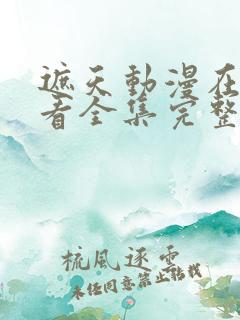 遮天動漫在
看全集完整
梳風逐雲
未經同意禁止轉載